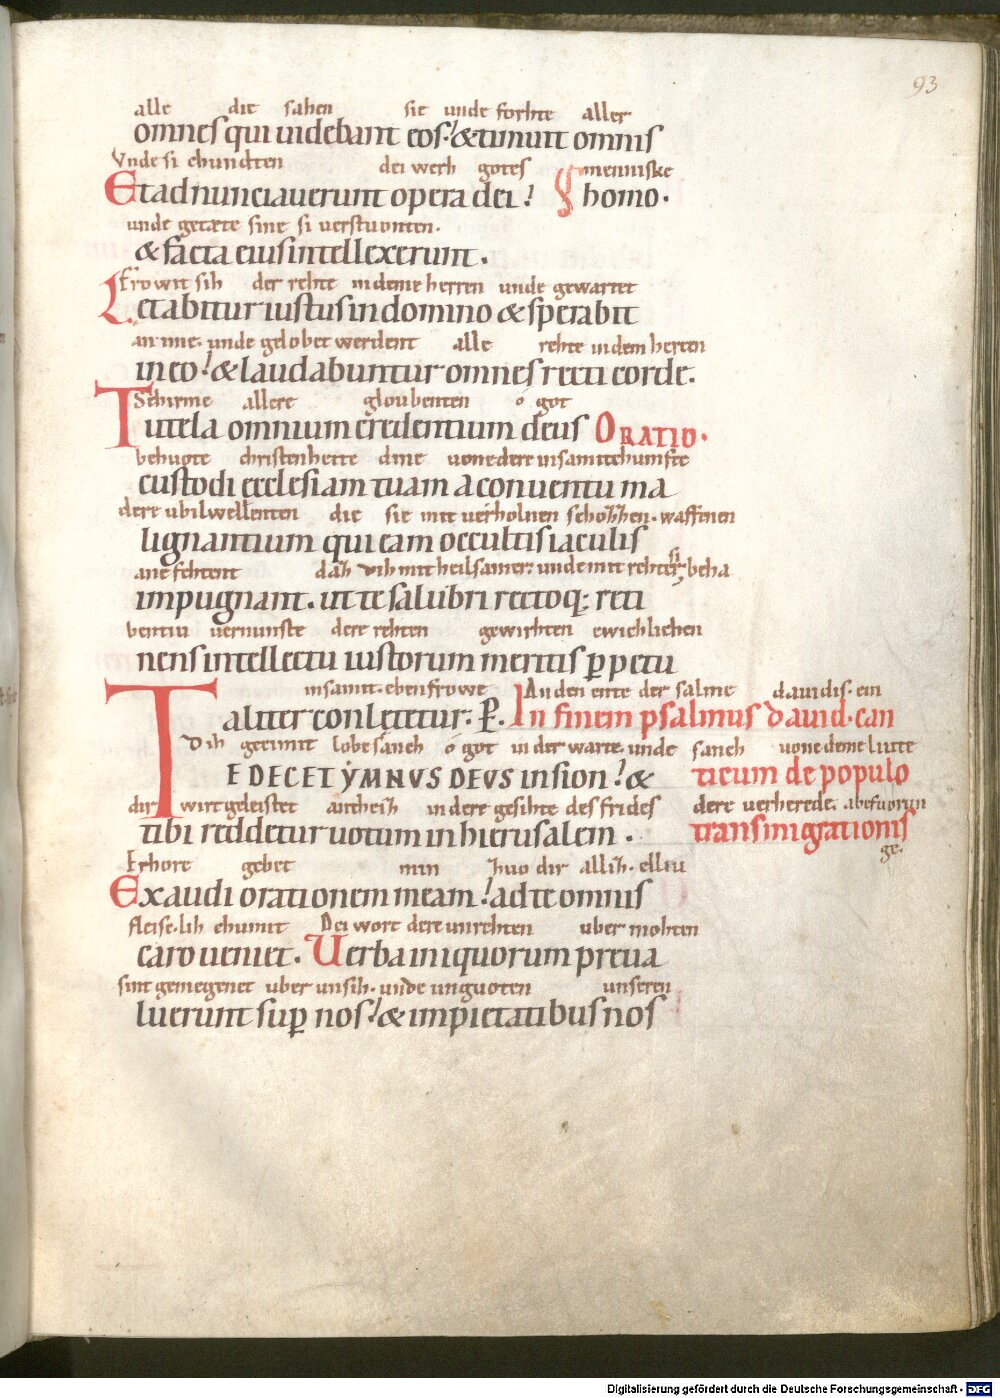 93
alle die sahen sie unde forhte aller
omnes qui uidebant eos. & timuit omnis
Vnde si chundten dei werh gotes menniske
Et adnunciauerunt opera dei. homo.
unde getæte sine si verstuonten.
& facta eius intellexerunt.
Frowit sih der rehte in deme herren unde gewartet
Letabitur iustus in domino & sperabit
an ime. unde gelobet werdent alle rehte in dem hercen
in eo. & laudabuntur omnes recti corde.
Schirme allere gloubenten o got
Tutela omnium credentium deus ORATIO.
behuote christenheite dine vone dere insamitchumfte
custodi ecclesiam tuam a conuentu ma
dere ubilwellenten die sie mit verholnen waffenen
lignantium qui eam occultis iaculis
ane fehtent mit heilsamer. unde mit rehter beha
impugnant. ut te salubri rectoq; reti
bentiu vernunste dere rehten gewirhten ewichlichen
nens intellectu iustorum meritis ppetu
insamit. eben frowe An den ente der salme dauidis. ein
aliter conletetur. P. In finem psalmus dauid. can
Dih geeimit lobesanch o got in der warte. unde sanch vone deme liute
TE DECET YMNVS DEVS in sion. & ticum de populo
dir wirt geleistet antheiz in dere gesihte des frides dere verherede. abefuorun
tibi reddetur uotum in hierusalem. transmigrationis
ge.
Erhore gebet min zuo dir allih. elliu
Exaudi orationem meam. ad te omnis
fleisc. lih chumit Dei wort dere unrehten uber mohten
caro ueniet. Uerba iniquorum preua
sint gemegenet uber unsih. unde unguoten unseren
luerunt sup nos. & impietatibus nos
Digitalisierung gefördert durch die Deutsche Forschungsgemeinschaft - DFG